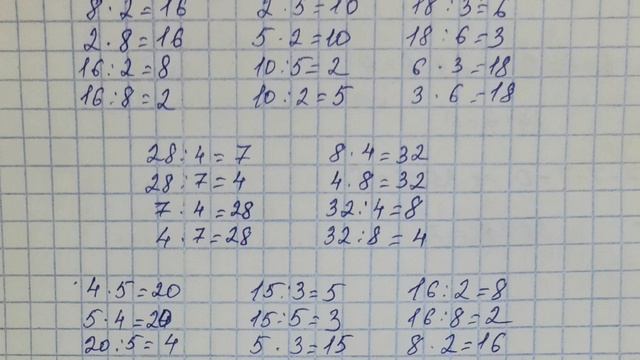 8 · 2 = 16 2 · 5 = 10 18 : 3 = 6
2 · 8 = 16 5 · 2 = 10 18 : 6 = 3
16 : 2 = 8 10 : 5 = 2 6 · 3 = 18
16 : 8 = 2 10 : 2 = 5 3 · 6 = 18
28 : 4 = 7 8 · 4 = 32
28 : 7 = 4 4 · 8 = 32
7 · 4 = 28 32 : 4 = 8
4 · 7 = 28 32 : 8 = 4
4 · 5 = 20 15 : 3 = 5 16 : 2 = 8
5 · 4 = 20 15 : 5 = 3 16 : 8 = 2
20 : 5 = 4 5 · 3 = 15 8 · 2 = 16